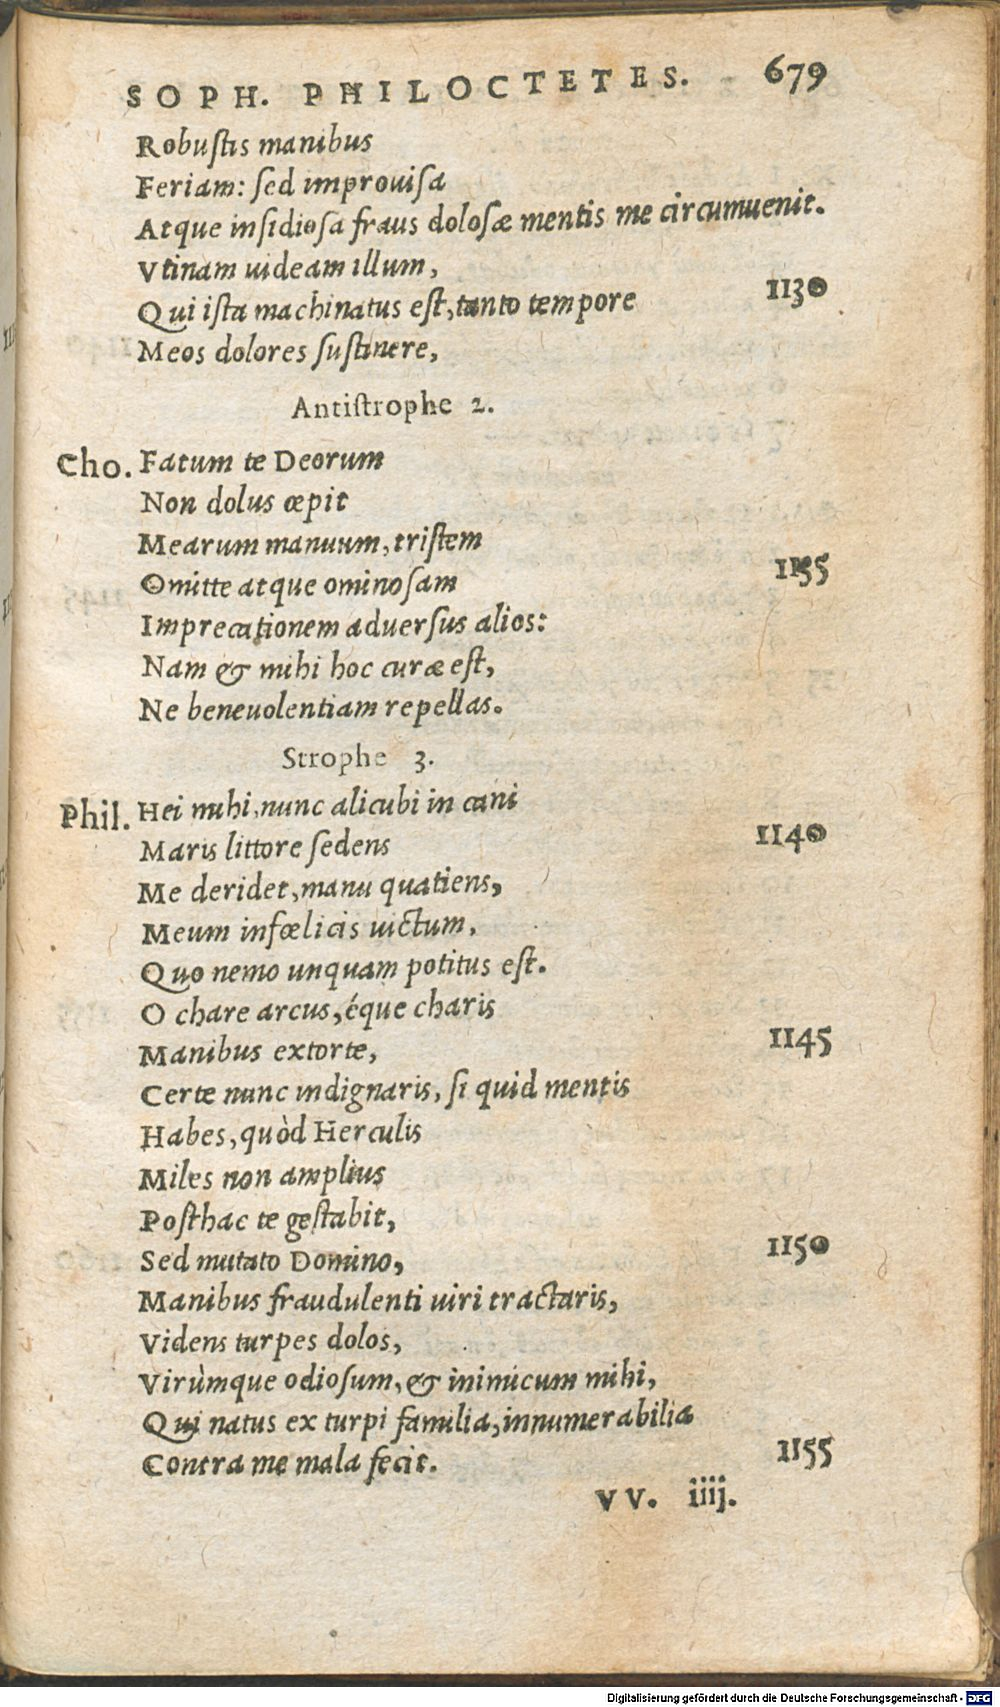 SOPH. PHILOCTETES. 679
Robustis manibus
Feriam: sed improuisa
Atque insidiosa fraus dolosæ mentis me circumuenit.
Vtinam uideam illum,
Qui ista machinatus est, tanto tempore 1130
Meos dolores sustinere,
Antistrophe 2.
Cho. Fatum te Deorum
Non dolus cœpit
Mearum manuum, tristem
Omitte atque ominosam 1135
Imprecationem aduersus alios:
Nam & mihi hoc curæ est,
Ne beneuolentiam repellas.
Strophe 3.
Phil. Hei mihi, nunc alicubi in cani
Maris littore sedens 1140
Me deridet, manu quatiens,
Meum infœlicis uictum,
Quo nemo unquam potitus est.
O chare arcus, éque charis
Manibus extorte, 1145
Certe nunc indignaris, si quid mentis
Habes, quòd Herculis
Miles non amplius
Posthac te gestabit,
Sed mutato Domino, 1150
Manibus fraudulenti uiri tractaris,
Videns turpes dolos,
Virùmque odiosum, & inimicum mihi,
Qui natus ex turpi familia, innumerabilia
Contra me mala fecit. 1155
VV. iiij.
Digitalisierung gefördert durch die Deutsche Forschungsgemeinschaft - DFG